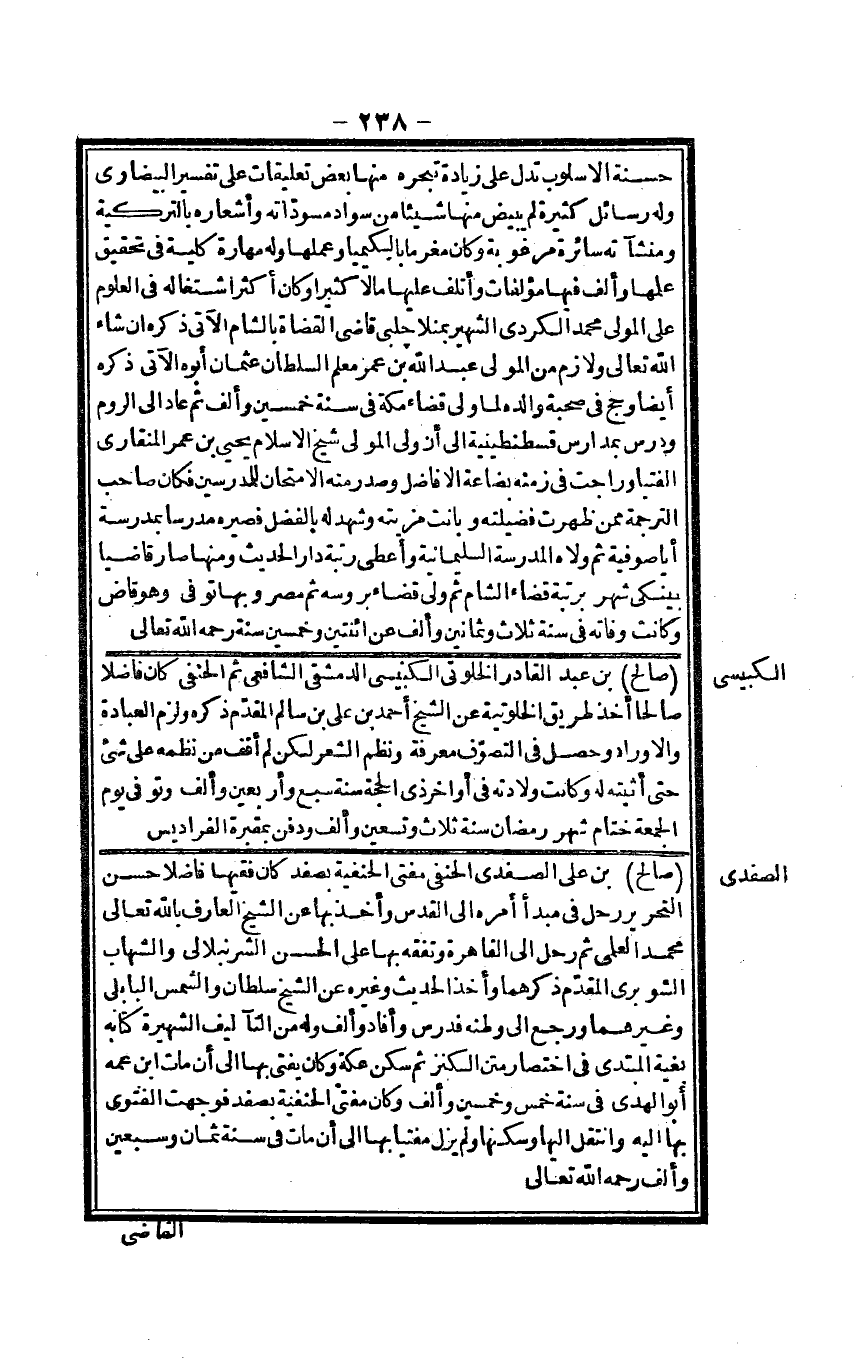 - ٢٣٨ -
حسنة الاسلوب تدل على زيادة تبحره منها بعض تعليقات على تفسير البيضاوى
وله رسائل كثيرة لم يبيض منها شيئا من سواد مسوداته وأشعاره بالتركية
ومنشآته سائرة مرغوبة وكان مغرما بالكيميا وعملها وله مهارة كلية فى تحقيق
علمها وألف فيها مؤلفات وأتلف عليها مالا كثيرا وكان أكثر اشتغاله فى العلوم
على المولى محمد الكردى الشهير بمنلا جلبى قاضى القضاة بالشام الآتى ذكره ان شاء
الله تعالى ولازم من المولى عبد الله بن عمر معلم السلطان عثمان أبوه الآتى ذكره
أيضا وحج فى صحبة والده لما ولى قضاء مكة فى سنة خمسين وألف ثم عاد الى الروم
ودرس بمدارس قسطنطينية الى أن ولى المولى شيخ الاسلام يحيى بن عمر المنقارى
الفتيا وراجت فى زمنه بضاعة الافاضل وصدر منه الامتحان للدرسين فكان صاحب
الترجمة ممن ظهرت فضيلته وبانت مزيته وشهد له بالفضل فصيره مدرسا بمدرسة
أياصوفية ثم ولاه المدرسة السليمانية وأعطى رتبة دار الحديث ومنها صار قاضيا
بينكى شهر برتبة قضاء الشام ثم ولى قضاء بروسه ثم مصر وبها توفى وهو قاض
وكانت وفاته فى سنة ثلاث وثمانين وألف عن اثنتين وخمسين سنة رحمه الله تعالى
الكبيسى
(صالح) بن عبد القادر الخلوتى الكبيسى الدمشقى الشافعى ثم الحنفى كان فاضلا
صالحا أخذ طريق الخلوتية عن الشيخ أحمد بن على بن سالم المقدّم ذكره ولزم العبادة
والاوراد وحصل فى التصوّف معرفة ونظم الشعر لكن لم أقف من نظمه على شئ
حتى أثبته له وكانت ولادته فى أواخر ذى الحجة سنة سبع وأربعين وألف وتوفى يوم
الجمعة ختام شهر رمضان سنة ثلاث وتسعين وألف ودفن بمقبرة الفراديس
الصفدى
(صالح) بن على الصفدى الحنفى مفتى الحنفية بصفد كان فقيها فاضلا حسن
التحرير رحل فى مبدأ أمره الى القدس وأخذ بها عن الشيخ العارف بالله تعالى
محمد العلمى ثم رحل الى القاهرة وتفقه بها على الحسن الشرنبلالى والشهاب
الشوبرى المقدّم ذكرهما وأخذ الحديث وغيره عن الشيخ سلطان والشمس البابلى
وغيرهما ورجع الى وطنه فدرس وأفاد وألف وله من التآليف الشهيرة كتابه
بغية المبتدى فى اختصار متن الكنز ثم سكن عكة وكان يفتى بها الى أن مات ابن عمه
أبو الهدى فى سنة خمس وخمسين وألف وكان مفتى الحنفية بصفد فوجهت الفتوى
بها اليه وانتقل اليها وسكنها ولم يزل مفتيا بها الى أن مات فى سنة ثمان وسبعين
وألف رحمه الله تعالى
القاضى